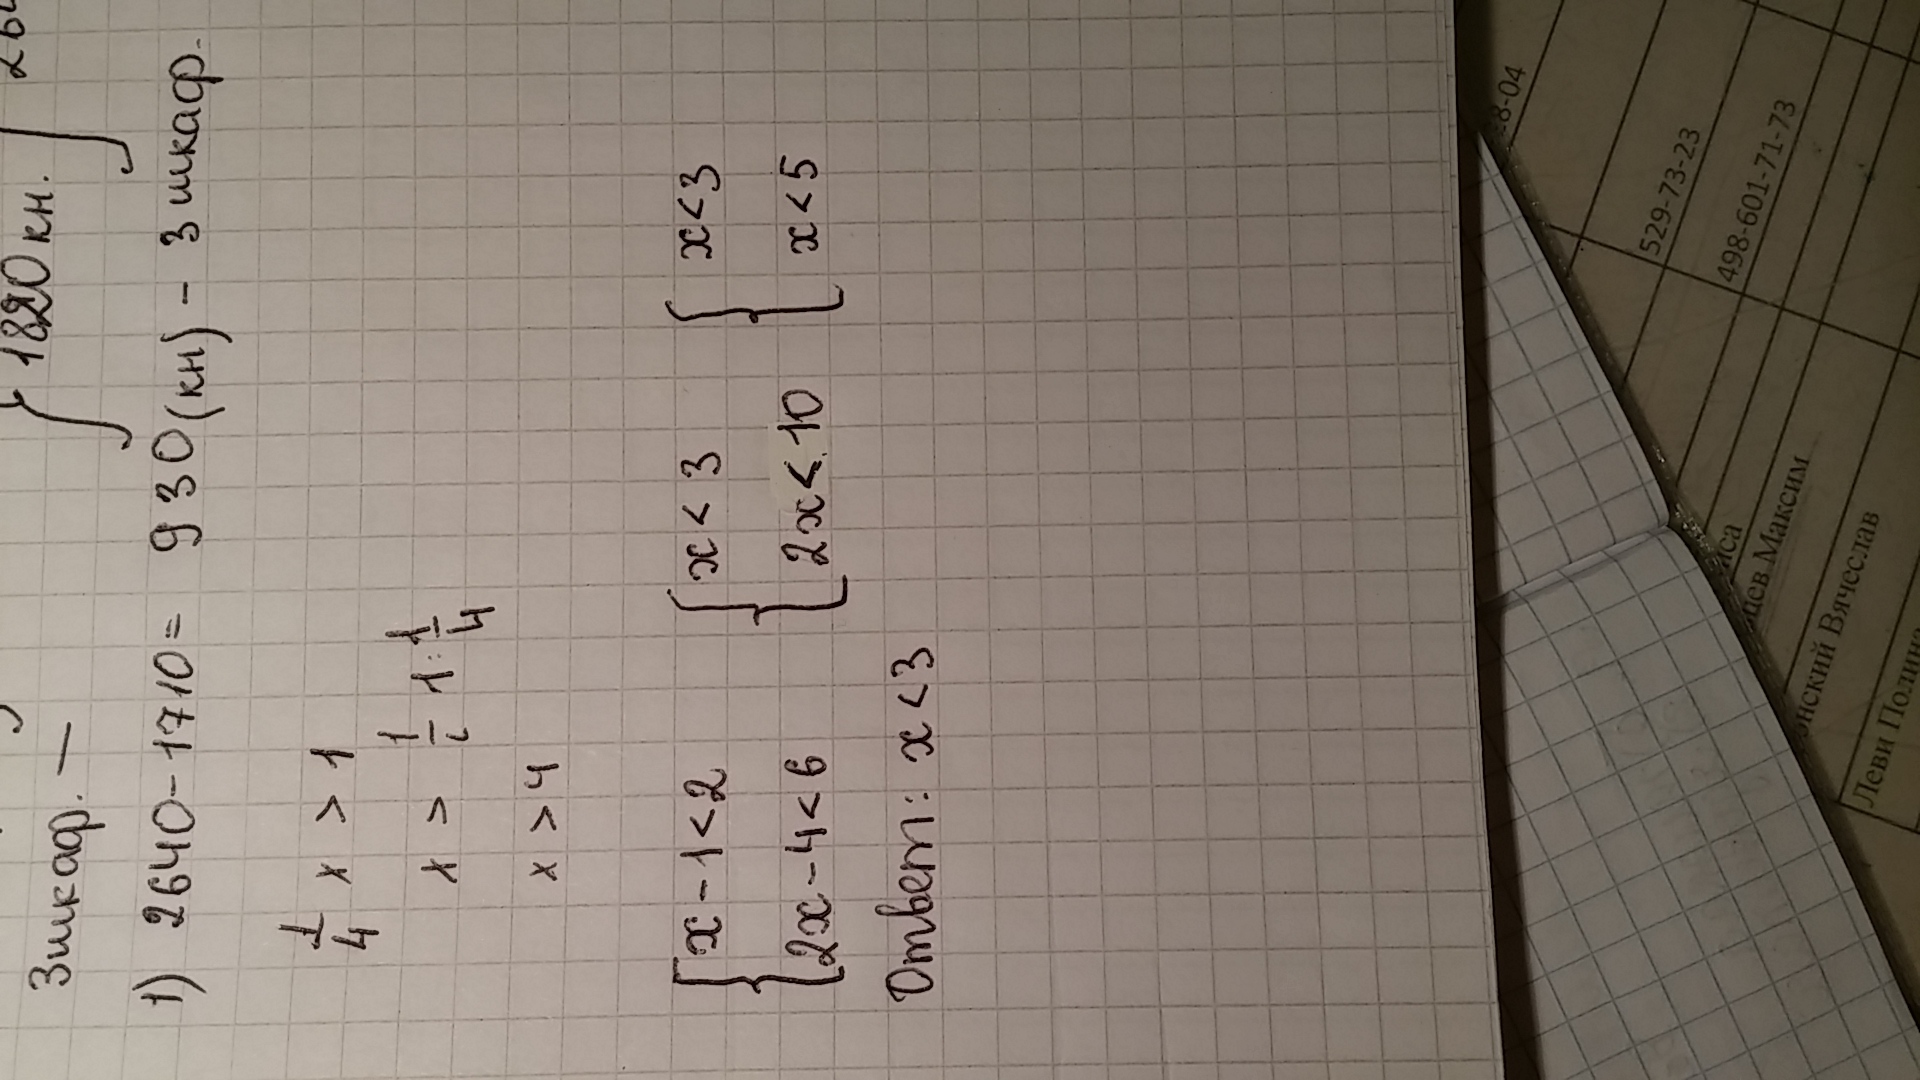 { 1820 кн. }
3 шкаф. —
1) 2640-1710= 930(кн) - 3 шкаф.
1/4 x > 1
x > 1 1:1/4
x > 4
{ x-1<2 { x<3 { x<3
{ 2x-4<6 { 2x<10 { x<5
Ответ: x<3
8-04
529-73-23
498-601-71-73
иса
цев Максим
нский Вячеслав
Леви Полина